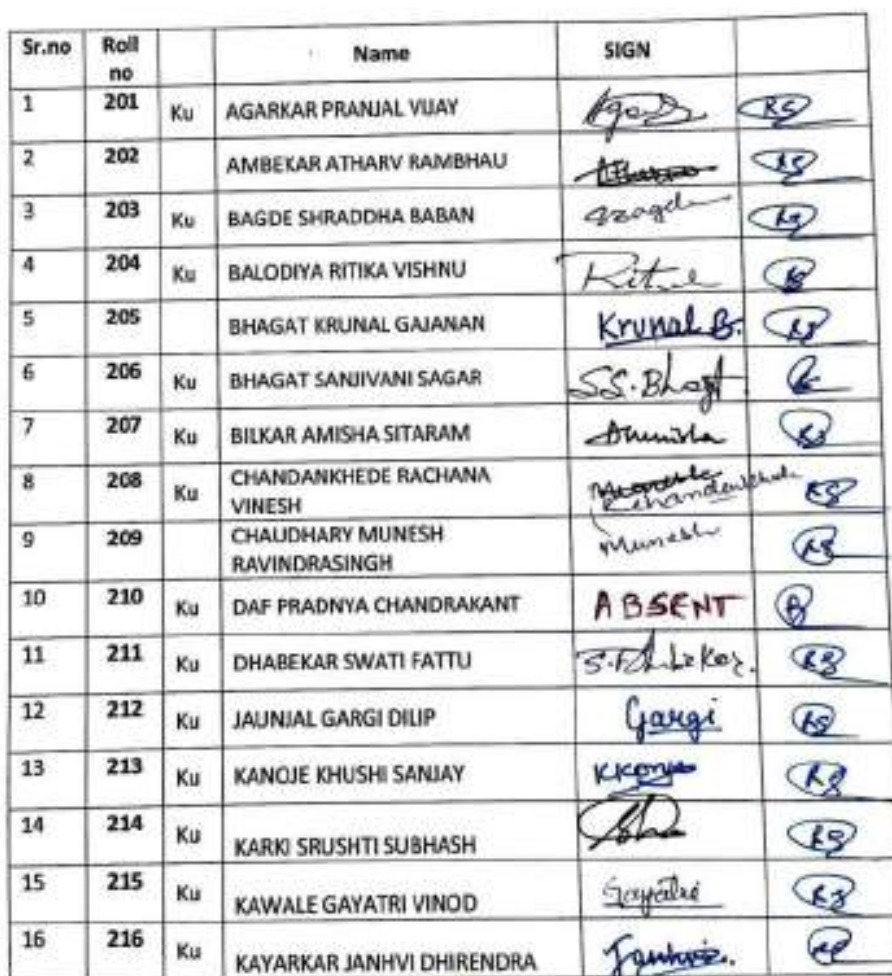 Sr.no Roll no Name SIGN
1 201 Ku AGARKAR PRANJAL VIJAY
2 202 AMBEKAR ATHARV RAMBHAU
3 203 Ku BAGDE SHRADDHA BABAN
4 204 Ku BALODIYA RITIKA VISHNU
5 205 BHAGAT KRUNAL GAJANAN Krunal B.
6 206 Ku BHAGAT SANJIVANI SAGAR S.S.Bhagat
7 207 Ku BILKAR AMISHA SITARAM
8 208 Ku CHANDANKHEDE RACHANA
VINESH
9 209 CHAUDHARY MUNESH Munesh
RAVINDRASINGH
10 210 Ku DAF PRADNYA CHANDRAKANT ABSENT
11 211 Ku DHABEKAR SWATI FATTU
12 212 Ku JAUNJAL GARGI DILIP Gargi
13 213 Ku KANOJE KHUSHI SANJAY
14 214 Ku KARKI SRUSHTI SUBHASH
15 215 Ku KAWALE GAYATRI VINOD Gayatri
16 216 Ku KAYARKAR JANHVI DHIRENDRA Janhvi.